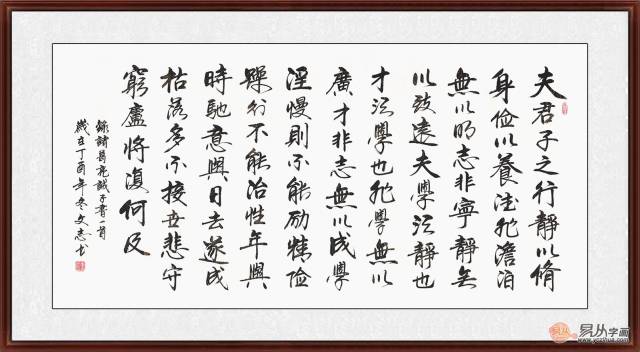 夫君子之行靜以脩
身儉以養德非澹泊
無以明志非寧靜無
以致遠夫學須靜也
才須學也非學無以
廣才非志無以成學
淫慢則不能勵精險
躁則不能治性年與
時馳意與日去遂成
枯落多不接世悲守
窮廬將復何及
錄諸葛亮誡子書一首
歲在丁酉年冬文志書
易从字画
www.yczihua.com